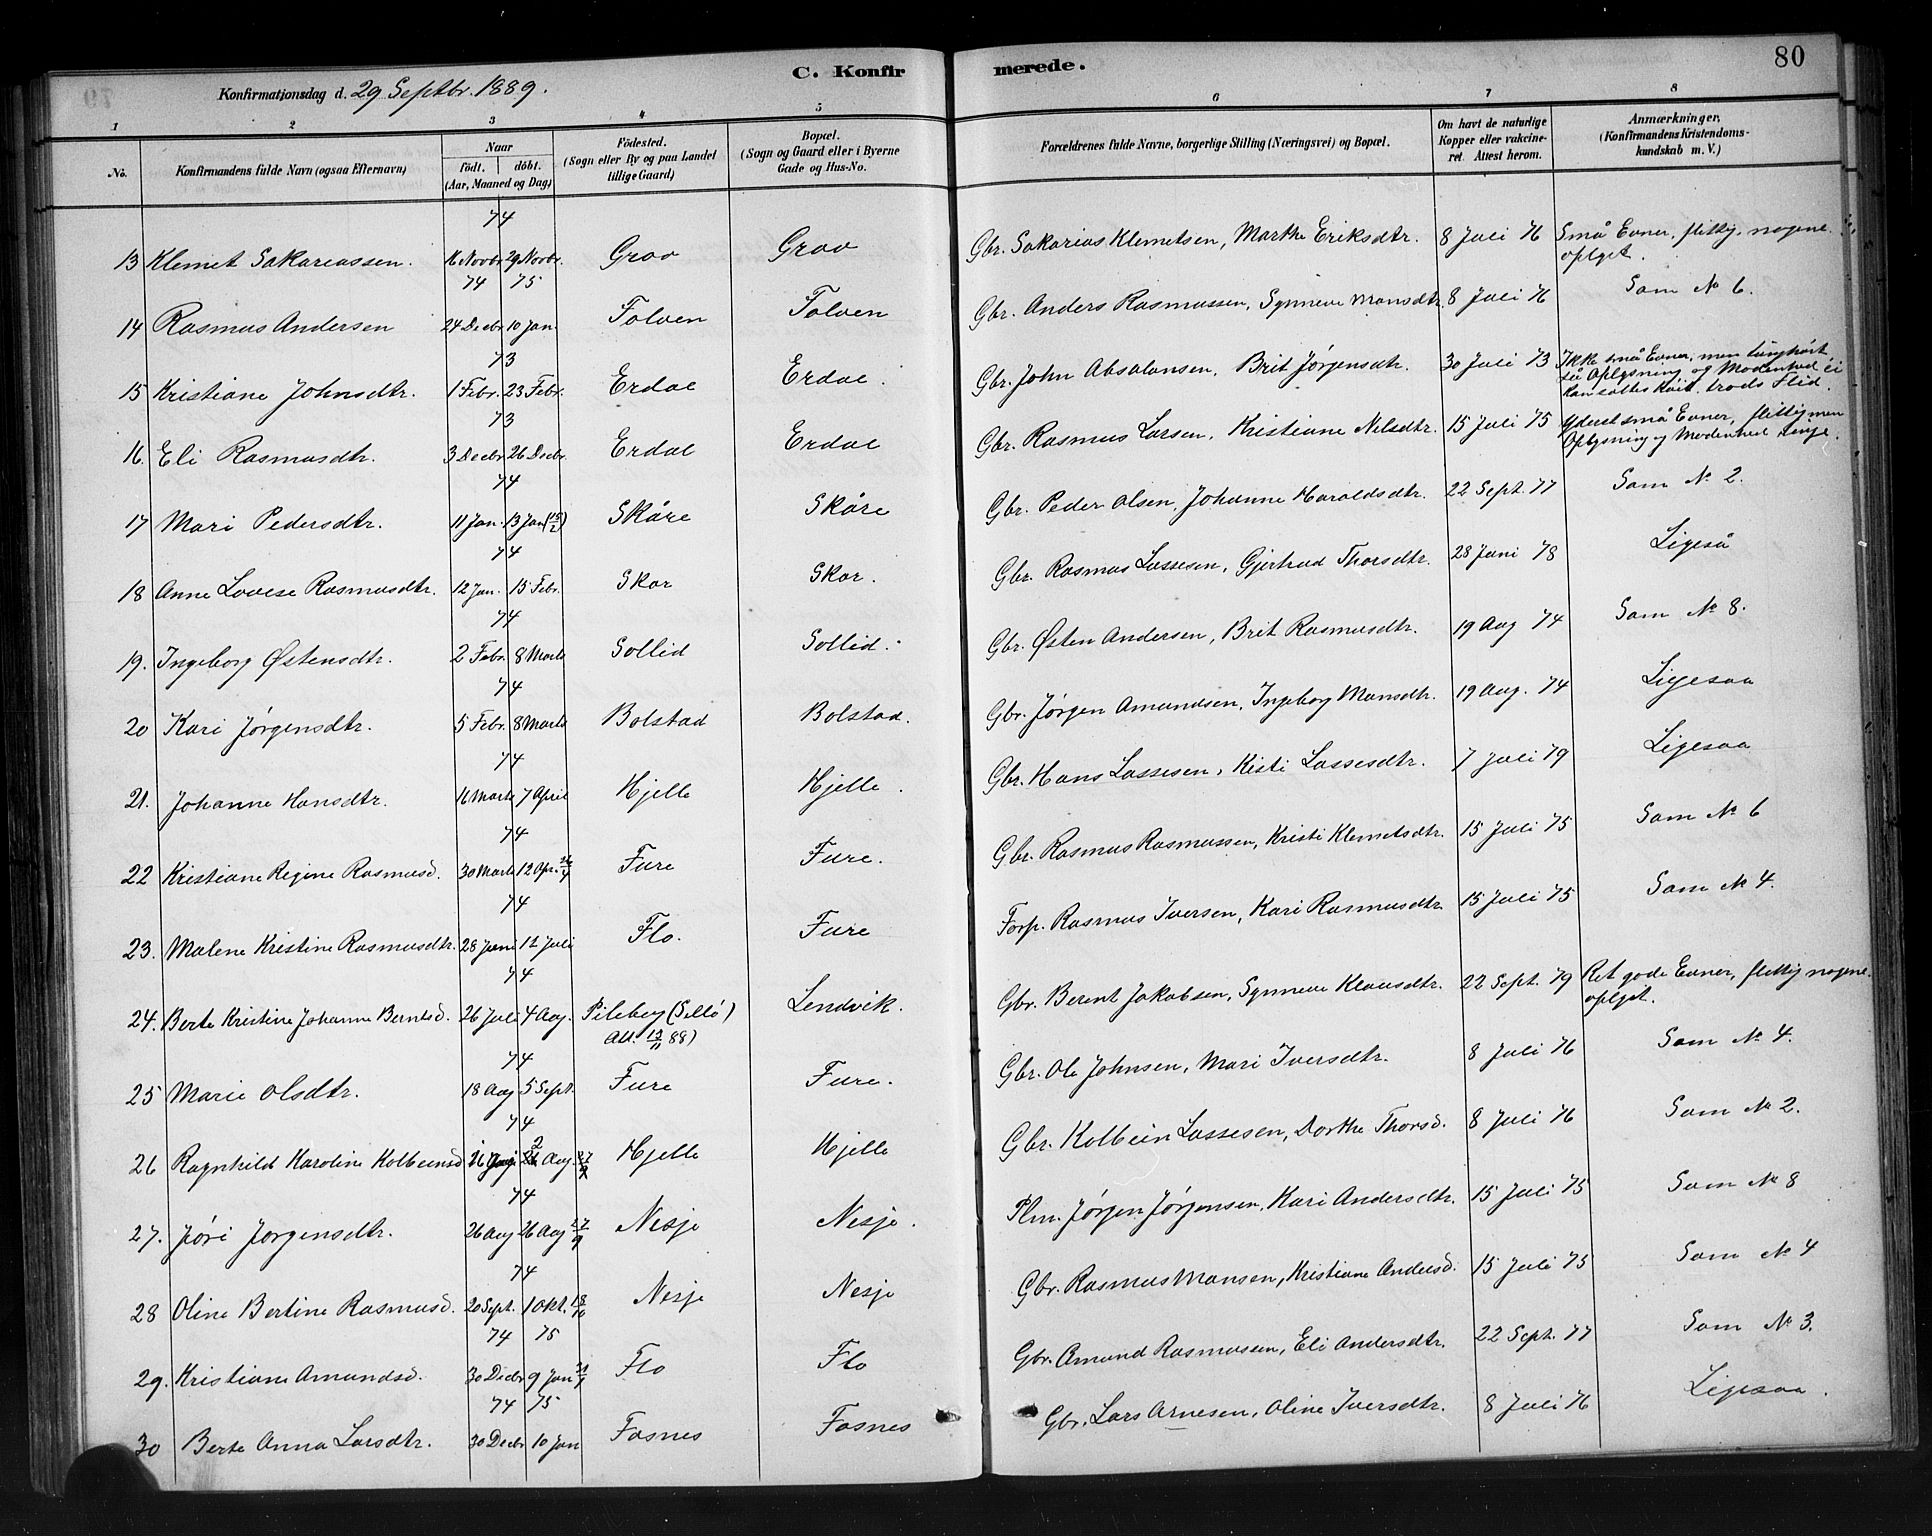 80
C. Konfirmerede.
Konfirmationsdag d. 29 Septbr. 1889.
1 2 3 4 5 6 7 8
No. Konfirmandens fulde Navn (ogsaa Efternavn) Naar Födt. döbt. (Aar, Maaned og Dag) Födested. (Sogn eller By og paa Landet tillige Gaard) Bopæl. (Sogn og Gaard eller i Byerne Gade og Hus-No. Forældrenes fulde Navne, borgerlige Stilling (Næringsvei) og Bopæl. Om havt de naturlige Kopper eller vakcineret. Attest herom. Anmærkninger, (Konfirmandens Kristendomskundskab m. V.)
74
13 Klemet Sakariassen. 16 Novbr. 29 Novbr. Grov Grov Gbr. Sakarias Klemetsen, Marthe Eriksdtr. 8 Juli 76 Små Evner, flittig, nogenl. oplyst.
74 75
14 Rasmus Andersen 24 Decbr 10 Jan. Folven Folven Gbr. Anders Rasmussen, Synneve Monsdtr. 8 Juli 76 Som No 6.
73
15 Kristiane Johnsdtr. 1 Febr. 23 Febr. Erdal Erdal. Gbr. John Absalonsen, Brit Jørgensdtr. 30 Juli 73 Ikke små Evner, men tunghørt, så Oplysning og Modenhed ei kan sættes høit, trods Flid.
73
16. Eli Rasmusdtr. 3 Decbr 26 Decbr. Erdal Erdal Gbr. Rasmus Larsen, Kristiane Nilsdtr. 15 Juli 75 Yderst små Evner, flittig men Oplysning og Modenhed ringe.
74
17 Mari Pedersdtr. 11 Jan. 13 Jan (15/2) Skåre Skåre Gbr. Peder Olsen, Johanne Haraldsdtr. 22 Sept. 77 Som No 2.
74
18 Anne Lovise Rasmusdtr. 12 Jan. 15 Febr. Skor Skor. Gbr. Rasmus Lassesen, Gjertrud Thorsdtr. 28 Juni 78 Ligeså
74
19. Ingeborg Østensdtr. 2 Febr. 8 Marts Sollid Sollid. Gbr. Østen Andersen, Brit Rasmusdtr. 19 Aug 74 Som No 8.
74
20 Kari Jørgensdtr. 5 Febr. 8 Marts Bolstad Bolstad. Gbr. Jørgen Amundsen, Ingeborg Monsdtr. 19 Aug. 74 Ligesaa
74
21. Johanne Hansdtr. 16 Marts 7 April Hjelle Hjelle. Gbr. Hans Lassesen, Kisti Lassesdtr. 7 Juli 79 Ligesaa
74
22 Kristiane Regine Rasmusd. 30 Marts 12 Apr. 26/4 Fure Fure. Gbr. Rasmus Rasmussen, Kristi Klemetsdtr. 15 Juli 75 Som No 6
74
23. Malene Kristine Rasmusdtr. 28 Juni 12 Juli Flo. Fure Forp. Rasmus Iversen, Kari Rasmusdtr. 15 Juli 75 Som No 4.
74
24. Berte Kristine Johanne Berntsd. 26 Juli 4 Aug. Pileberg (Sellø) Att. 13/11 88) Lendvik. Gbr. Berent Jakobsen, Synneve Klausdtr. 22 Sept. 79 Ret gode Evner, flittig nogenl. oplyst.
74
25 Marie Olsdtr. 18 Aug 5 Sept. Fure Fure. Gbr. Ole Johnsen, Mari Iversdtr. 8 Juli 76 Som No 4.
74
26 Ragnhild Karoline Kolbeinsd 26 Aug. 27/9 Hjelle Hjelle Gbr. Kolbein Lassesen, Dorthe Thorsd. 8 Juli 76 Som No 2.
74
27. Jøri Jørgensdtr. 26 Aug 26 Aug 27/9 Nesje Nesje. Plm. Jørgen Jørgensen, Kari Andersdtr. 15 Juli 75 Som No 8
74
28 Oline Bertine Rasmusd. 20 Sept. 1 Okt. 18/10 Nesje Nesje Gbr. Rasmus Monsen, Kristiane Andersd. 15 Juli 75 Som No 4
74 75
29. Kristiane Amundsd. 30 Decbr 9 Jan 31/1 Flo Flo Gbr. Amund Rasmussen, Eli Andersdtr. 22 Sept. 77 Som No 3.
74 75
30 Berte Anna Larsdtr. 30 Decbr 10 Jan Fosnes Fosnes Gbr. Lars Arnesen, Oline Iversdtr. 8 Juli 76 Ligesaa.